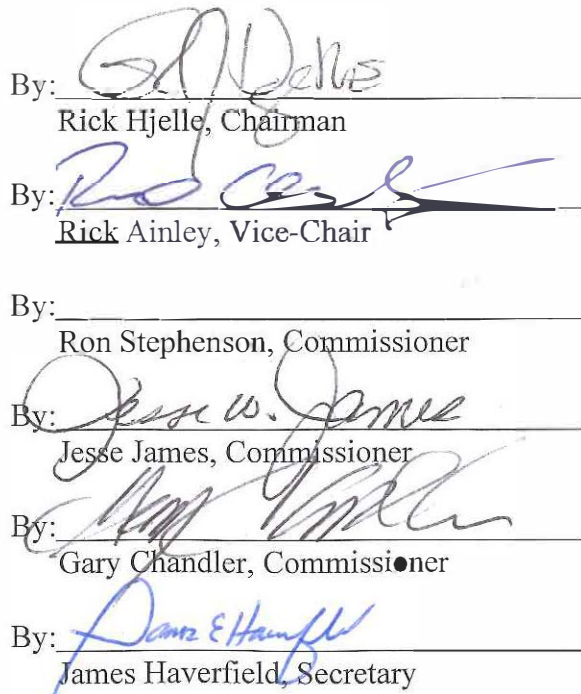 By:
Rick Hjelle, Chairman
By:
Rick Ainley, Vice-Chair
By:
Ron Stephenson, Commissioner
By: Jesse W. James
Jesse James, Commissioner
By:
Gary Chandler, Commissioner
By: James E Haverfield
James Haverfield, Secretary